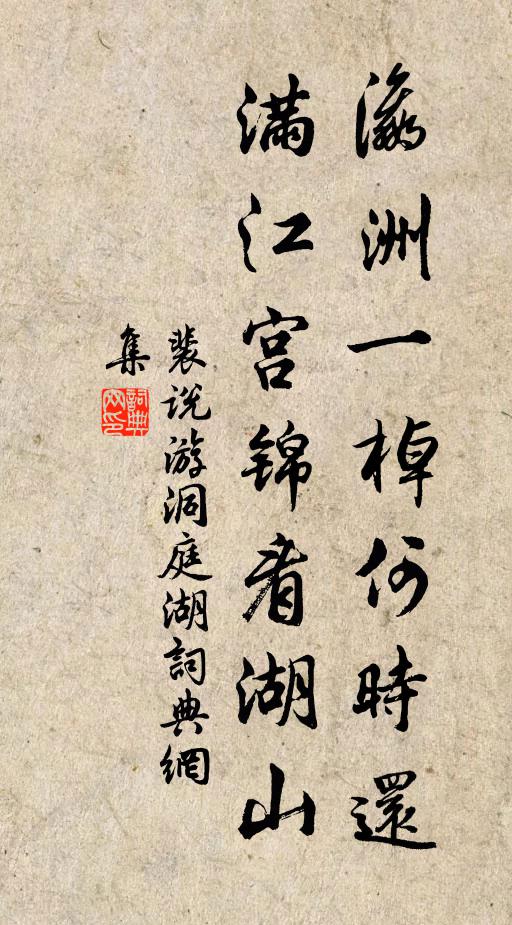 瀛洲一棹何時還
滿江宮錦看湖山
裴说游洞庭湖詞典網
集
詞典网印